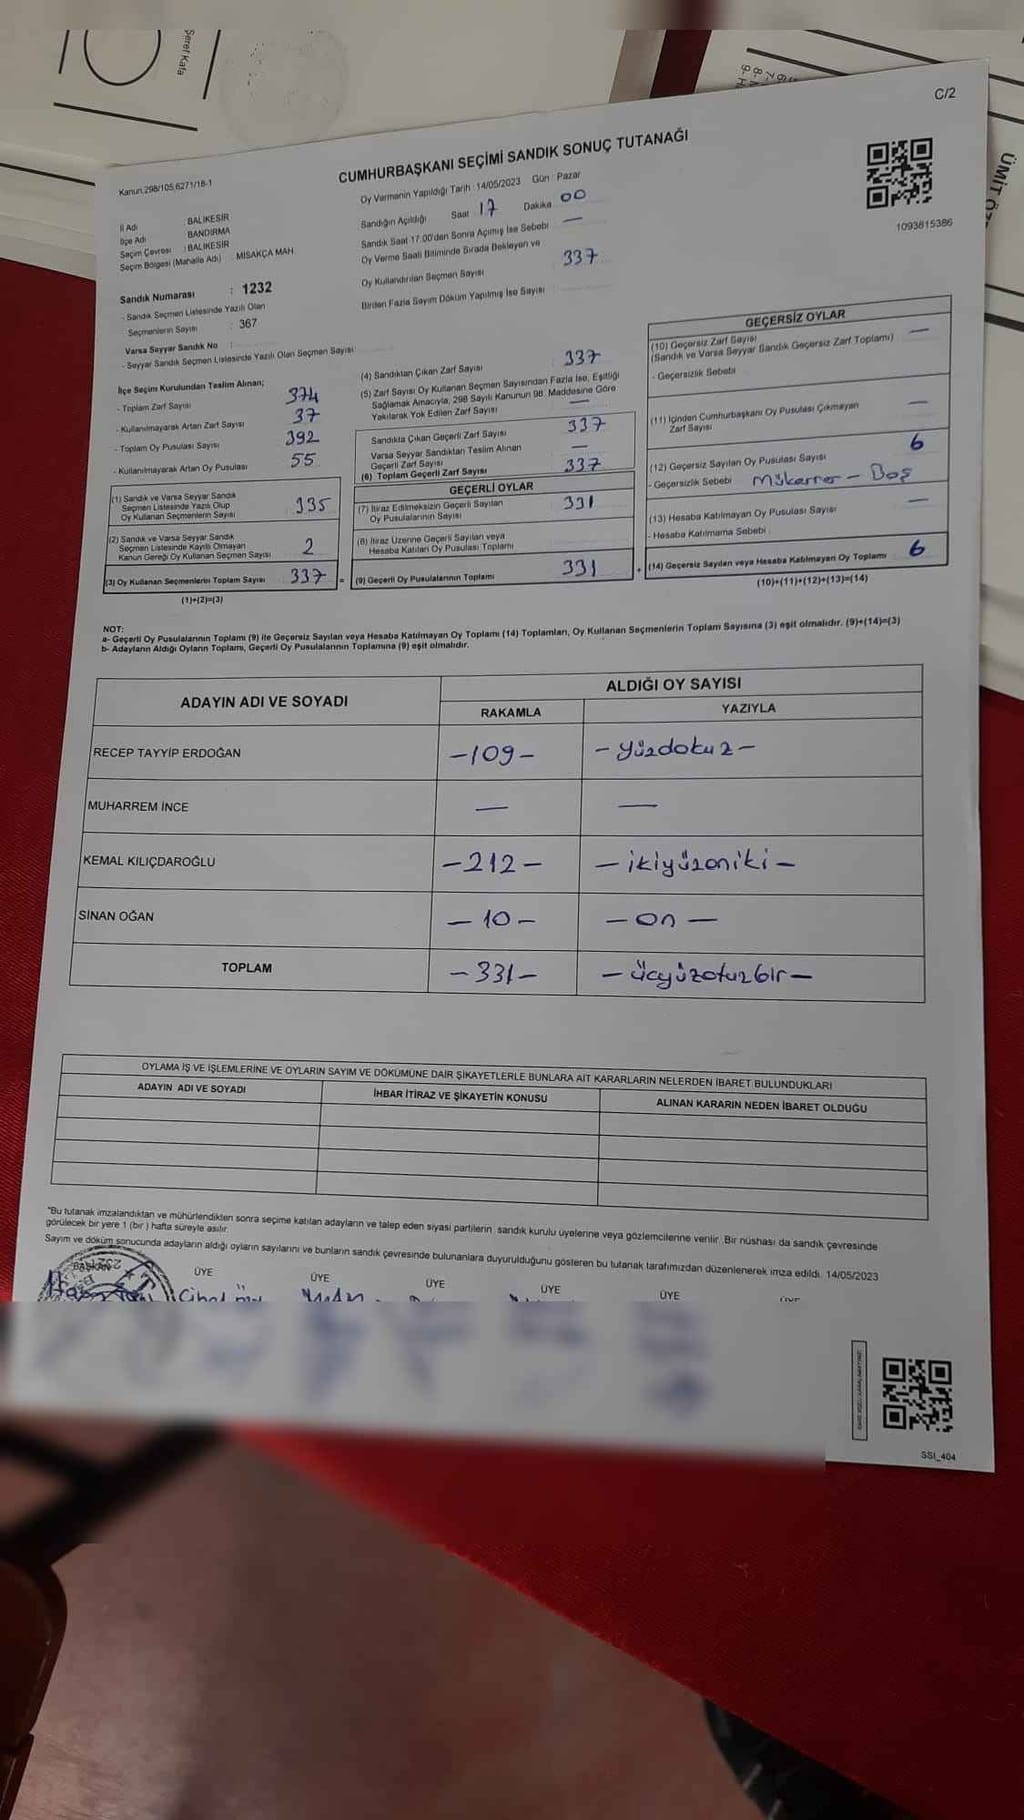 Şeref Kafa
ÜMİT ÖZ
C/2
Kanun:298/105,6271/18-1
CUMHURBAŞKANI SEÇİMİ SANDIK SONUÇ TUTANAĞI
1093815386
İl Adı BALIKESİR
İlçe Adı BANDIRMA
Seçim Çevresi : BALIKESİR
Seçim Bölgesi (Mahalle Adı) : MISAKÇA MAH.
Oy Vermenin Yapıldığı Tarih : 14/05/2023 Gün : Pazar
Sandığın Açıldığı Saat 17 Dakika 00
Sandık Saat 17.00'den Sonra Açımış İse Sebebi —
Oy Verme Saati Bitiminde Sırada Bekleyen ve
Oy Kullandırılan Seçmen Sayısı 337
Birden Fazla Sayım Döküm Yapılmış İse Sayısı
Sandık Numarası : 1232
- Sandık Seçmen Listesinde Yazılı Olan
Seçmenlerin Sayısı : 367
Varsa Seyyar Sandık No :
- Seyyar Sandık Seçmen Listesinde Yazılı Olan Seçmen Sayısı
İlçe Seçim Kurulundan Teslim Alınan;
- Toplam Zarf Sayısı 374
- Kullanılmayarak Artan Zarf Sayısı 37
- Toplam Oy Pusulası Sayısı 392
- Kullanılmayarak Artan Oy Pusulası 55
(1) Sandık ve Varsa Seyyar Sandık
Seçmen Listesinde Yazılı Olup
Oy Kullanan Seçmenlerin Sayısı 335
(2) Sandık ve Varsa Seyyar Sandık
Seçmen Listesinde Kayıtlı Olmayan
Kanun Gereği Oy Kullanan Seçmen Sayısı 2
(3) Oy Kullanan Seçmenlerin Toplam Sayısı 337 =
(1)+(2)=(3)
(4) Sandıktan Çıkan Zarf Sayısı 337
(5) Zarf Sayısı Oy Kullanan Seçmen Sayısından Fazla İse, Eşitliği
Sağlamak Amacıyla, 298 Sayılı Kanunun 98. Maddesine Göre
Yakılarak Yok Edilen Zarf Sayısı —
Sandıkta Çıkan Geçerli Zarf Sayısı 337
Varsa Seyyar Sandıktan Teslim Alınan
Geçerli Zarf Sayısı —
(6) Toplam Geçerli Zarf Sayısı 337
GEÇERLİ OYLAR
(7) İtiraz Edilmeksizin Geçerli Sayılan
Oy Pusulalarının Sayısı 331
(8) İtiraz Üzerine Geçerli Sayılan veya
Hesaba Katılan Oy Pusulası Toplamı
(9) Geçerli Oy Pusulalarının Toplamı 331 +
GEÇERSİZ OYLAR
(10) Geçersiz Zarf Sayısı —
(Sandık ve Varsa Seyyar Sandık Geçersiz Zarf Toplamı)
- Geçersizlik Sebebi
(11) İçinden Cumhurbaşkanı Oy Pusulası Çıkmayan —
Zarf Sayısı
(12) Geçersiz Sayılan Oy Pusulası Sayısı 6
- Geçersizlik Sebebi Mükerrer - Boş
(13) Hesaba Katılmayan Oy Pusulası Sayısı —
- Hesaba Katılmama Sebebi
(14) Geçersiz Sayılan veya Hesaba Katılmayan Oy Toplamı 6
(10)+(11)+(12)+(13)=(14)
NOT:
a- Geçerli Oy Pusulalarının Toplamı (9) ile Geçersiz Sayılan veya Hesaba Katılmayan Oy Toplamı (14) Toplamları, Oy Kullanan Seçmenlerin Toplam Sayısına (3) eşit olmalıdır. (9)+(14)=(3)
b- Adayların Aldığı Oyların Toplamı, Geçerli Oy Pusulalarının Toplamına (9) eşit olmalıdır.
ADAYIN ADI VE SOYADI ALDIĞI OY SAYISI
RAKAMLA YAZIYLA
RECEP TAYYİP ERDOĞAN -109- -yüzdokuz-
MUHARREM İNCE — —
KEMAL KILIÇDAROĞLU -212- -ikiyüzoniki-
SİNAN OĞAN -10- -on-
TOPLAM -331- -üçyüzotuzbir-
OYLAMA İŞ VE İŞLEMLERİNE VE OYLARIN SAYIM VE DÖKÜMÜNE DAİR ŞİKAYETLERLE BUNLARA AİT KARARLARIN NELERDEN İBARET BULUNDUKLARI
ADAYIN ADI VE SOYADI İHBAR İTİRAZ VE ŞİKAYETİN KONUSU ALINAN KARARIN NEDEN İBARET OLDUĞU
*Bu tutanak imzalandıktan ve mühürlendikten sonra seçime katılan adayların ve talep eden siyasi partilerin sandık kurulu üyelerine veya gözlemcilerine verilir. Bir nüshası da sandık çevresinde
görülecek bir yere 1 (bir) hafta süreyle asılır.
Sayım ve döküm sonucunda adayların aldığı oyların sayılarını ve bunların sandık çevresinde bulunanlara duyurulduğunu gösteren bu tutanak tarafımızdan düzenlenerek imza edildi. 14/05/2023
BAŞKAN ÜYE ÜYE ÜYE ÜYE ÜYE ÜYE
SSI_404